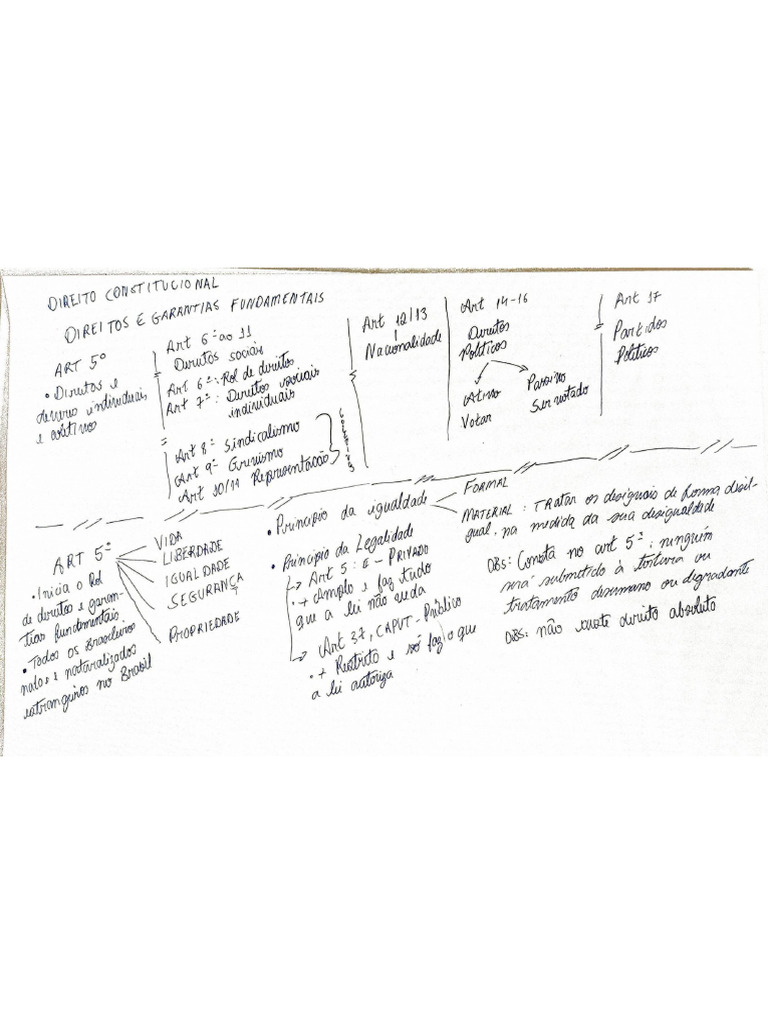 DIREITO CONSTITUCIONAL
DIREITOS E GARANTIAS FUNDAMENTAIS
ART 5º
• Direitos e
deveres individuais
e coletivos
Art 6º ao 11
Direitos sociais
Art 6º: Rol de direitos
Art 7º: Direitos sociais
individuais
Art 8º Sindicalismo
Art 9º Grevismo
Art 10/11 Representação
Art 12/13
Nacionalidade
Art 14-16
Direitos
Políticos
Ativo
Votar
Passivo
Ser votado
Art 17
Partidos
Políticos
ART 5º
• Inicia o Rol
de direitos e garan-
tias fundamentais.
• Todos os Brasileiros
natos e naturalizados
estrangeiros no Brasil
VIDA
LIBERDADE
IGUALDADE
SEGURANÇA
PROPRIEDADE
• Princípio da igualdade
FORMAL
MATERIAL: TRATAR os desiguais de forma desi-
gual, na medida da sua desigualdade
• Princípio da Legalidade
→ Art 5: II - PRIVADO
• + Amplo e faz tudo
que a lei não veda
→ Art 37, CAPUT - Público
• + Restrito e só faz o que
a lei autoriza
OBS: Consta no art 5º: ninguém
será submetido à tortura ou
tratamento desumano ou degradante
OBS: não existe direito absoluto